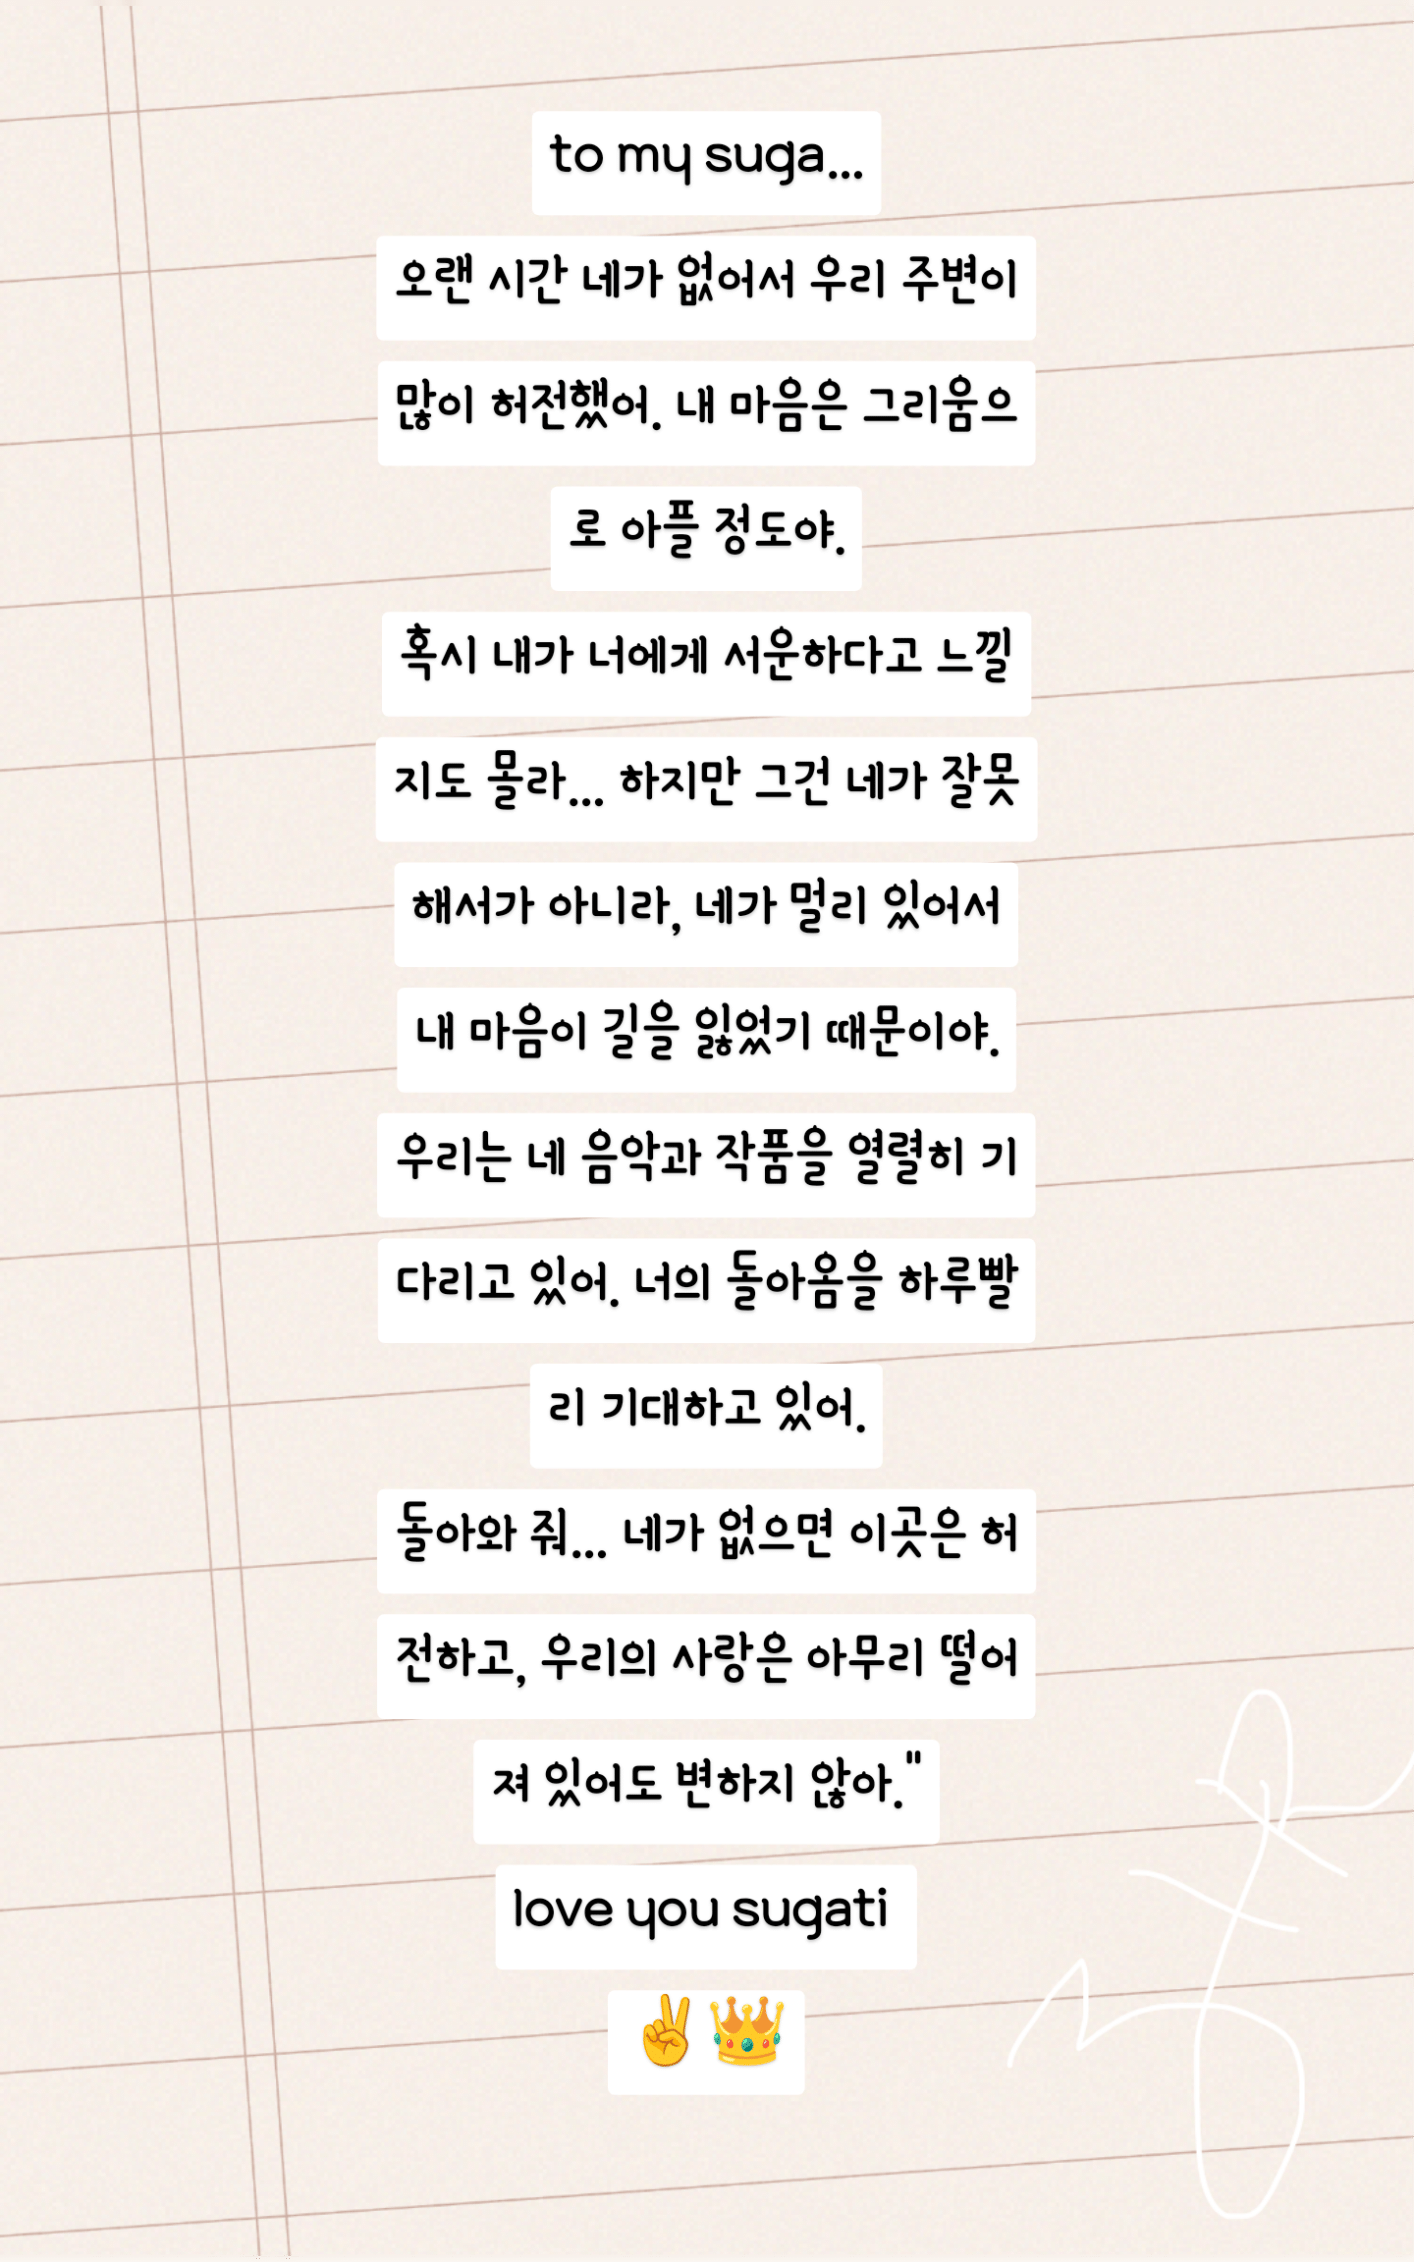 to my suga...
오랜 시간 네가 없어서 우리 주변이
많이 허전했어. 내 마음은 그리움으
로 아플 정도야.
혹시 내가 너에게 서운하다고 느낄
지도 몰라... 하지만 그건 네가 잘못
해서가 아니라, 네가 멀리 있어서
내 마음이 길을 잃었기 때문이야.
우리는 네 음악과 작품을 열렬히 기
다리고 있어. 너의 돌아옴을 하루빨
리 기대하고 있어.
돌아와 줘... 네가 없으면 이곳은 허
전하고, 우리의 사랑은 아무리 떨어
져 있어도 변하지 않아."
love you sugati
✌️👑